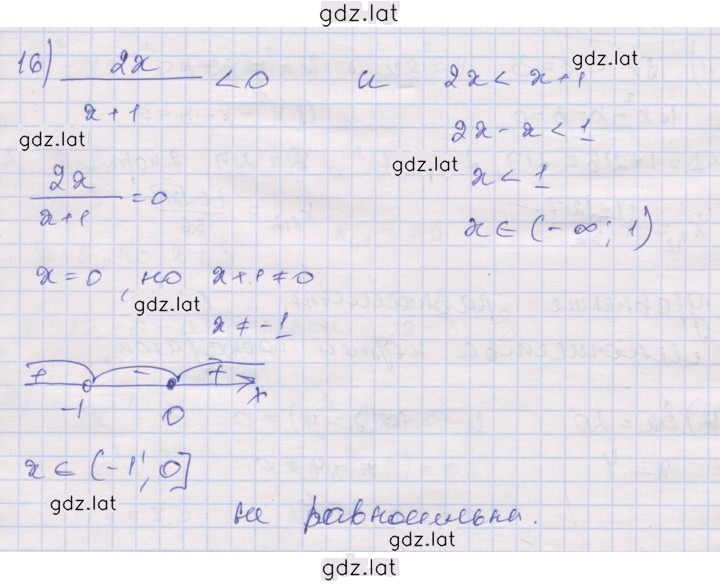 gdz.lat
16) 2x / x+1 < 0 и 2x < x+1
gdz.lat
2x - x < 1
gdz.lat
2x / x+1 = 0
gdz.lat
x < 1
x ∈ (-∞; 1)
x = 0, но x+1 ≠ 0
gdz.lat
x ≠ -1
+ - + x
-1 0
x ∈ (-1; 0]
gdz.lat
не равносильна.
gdz.lat
gdz.lat